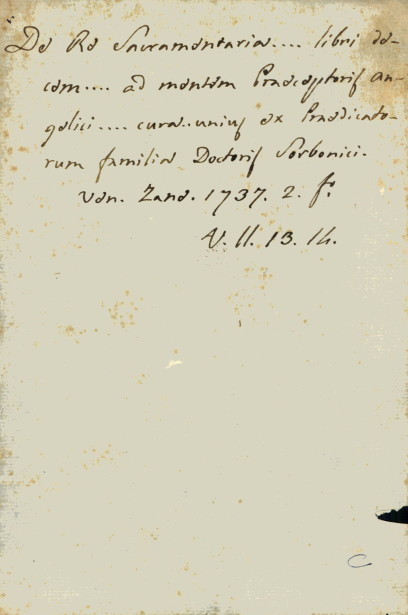 De Re Sacramentaria.... libri de-
cem.... ad mentem Praeceptoris an-
gelici.... cura..unius ex Praedicato-
rum familia Doctoris Sorbonici.
Ven. Zane. 1737. 2. fo.
V. 11. 13. 14.
C